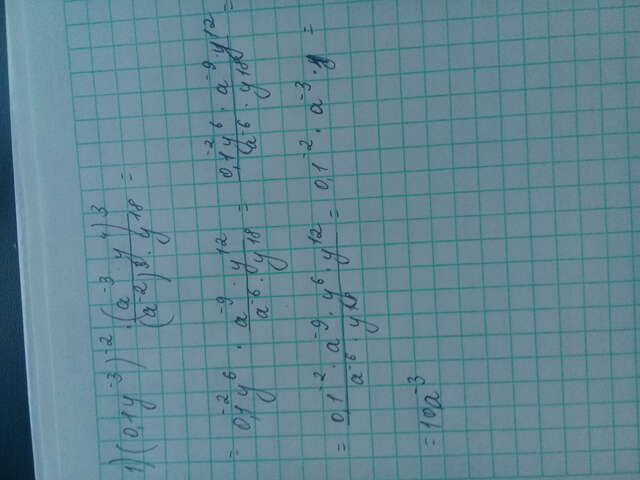 1) (0,1y⁻³)⁻² · (a⁻³ · y⁴)³ / (a⁻²)³ · y¹⁸ =
= 0,1⁻²y⁶ · a⁻⁹ · y¹² / a⁻⁶ · y¹⁸ = 0,1⁻²y⁶ · a⁻⁹ · y¹² / a⁻⁶ · y¹⁸ =
= 0,1⁻² · a⁻⁹ · y⁶ · y¹² / a⁻⁶ · y¹⁸ = 0,1⁻² · a⁻³ · y =
= 10a⁻³